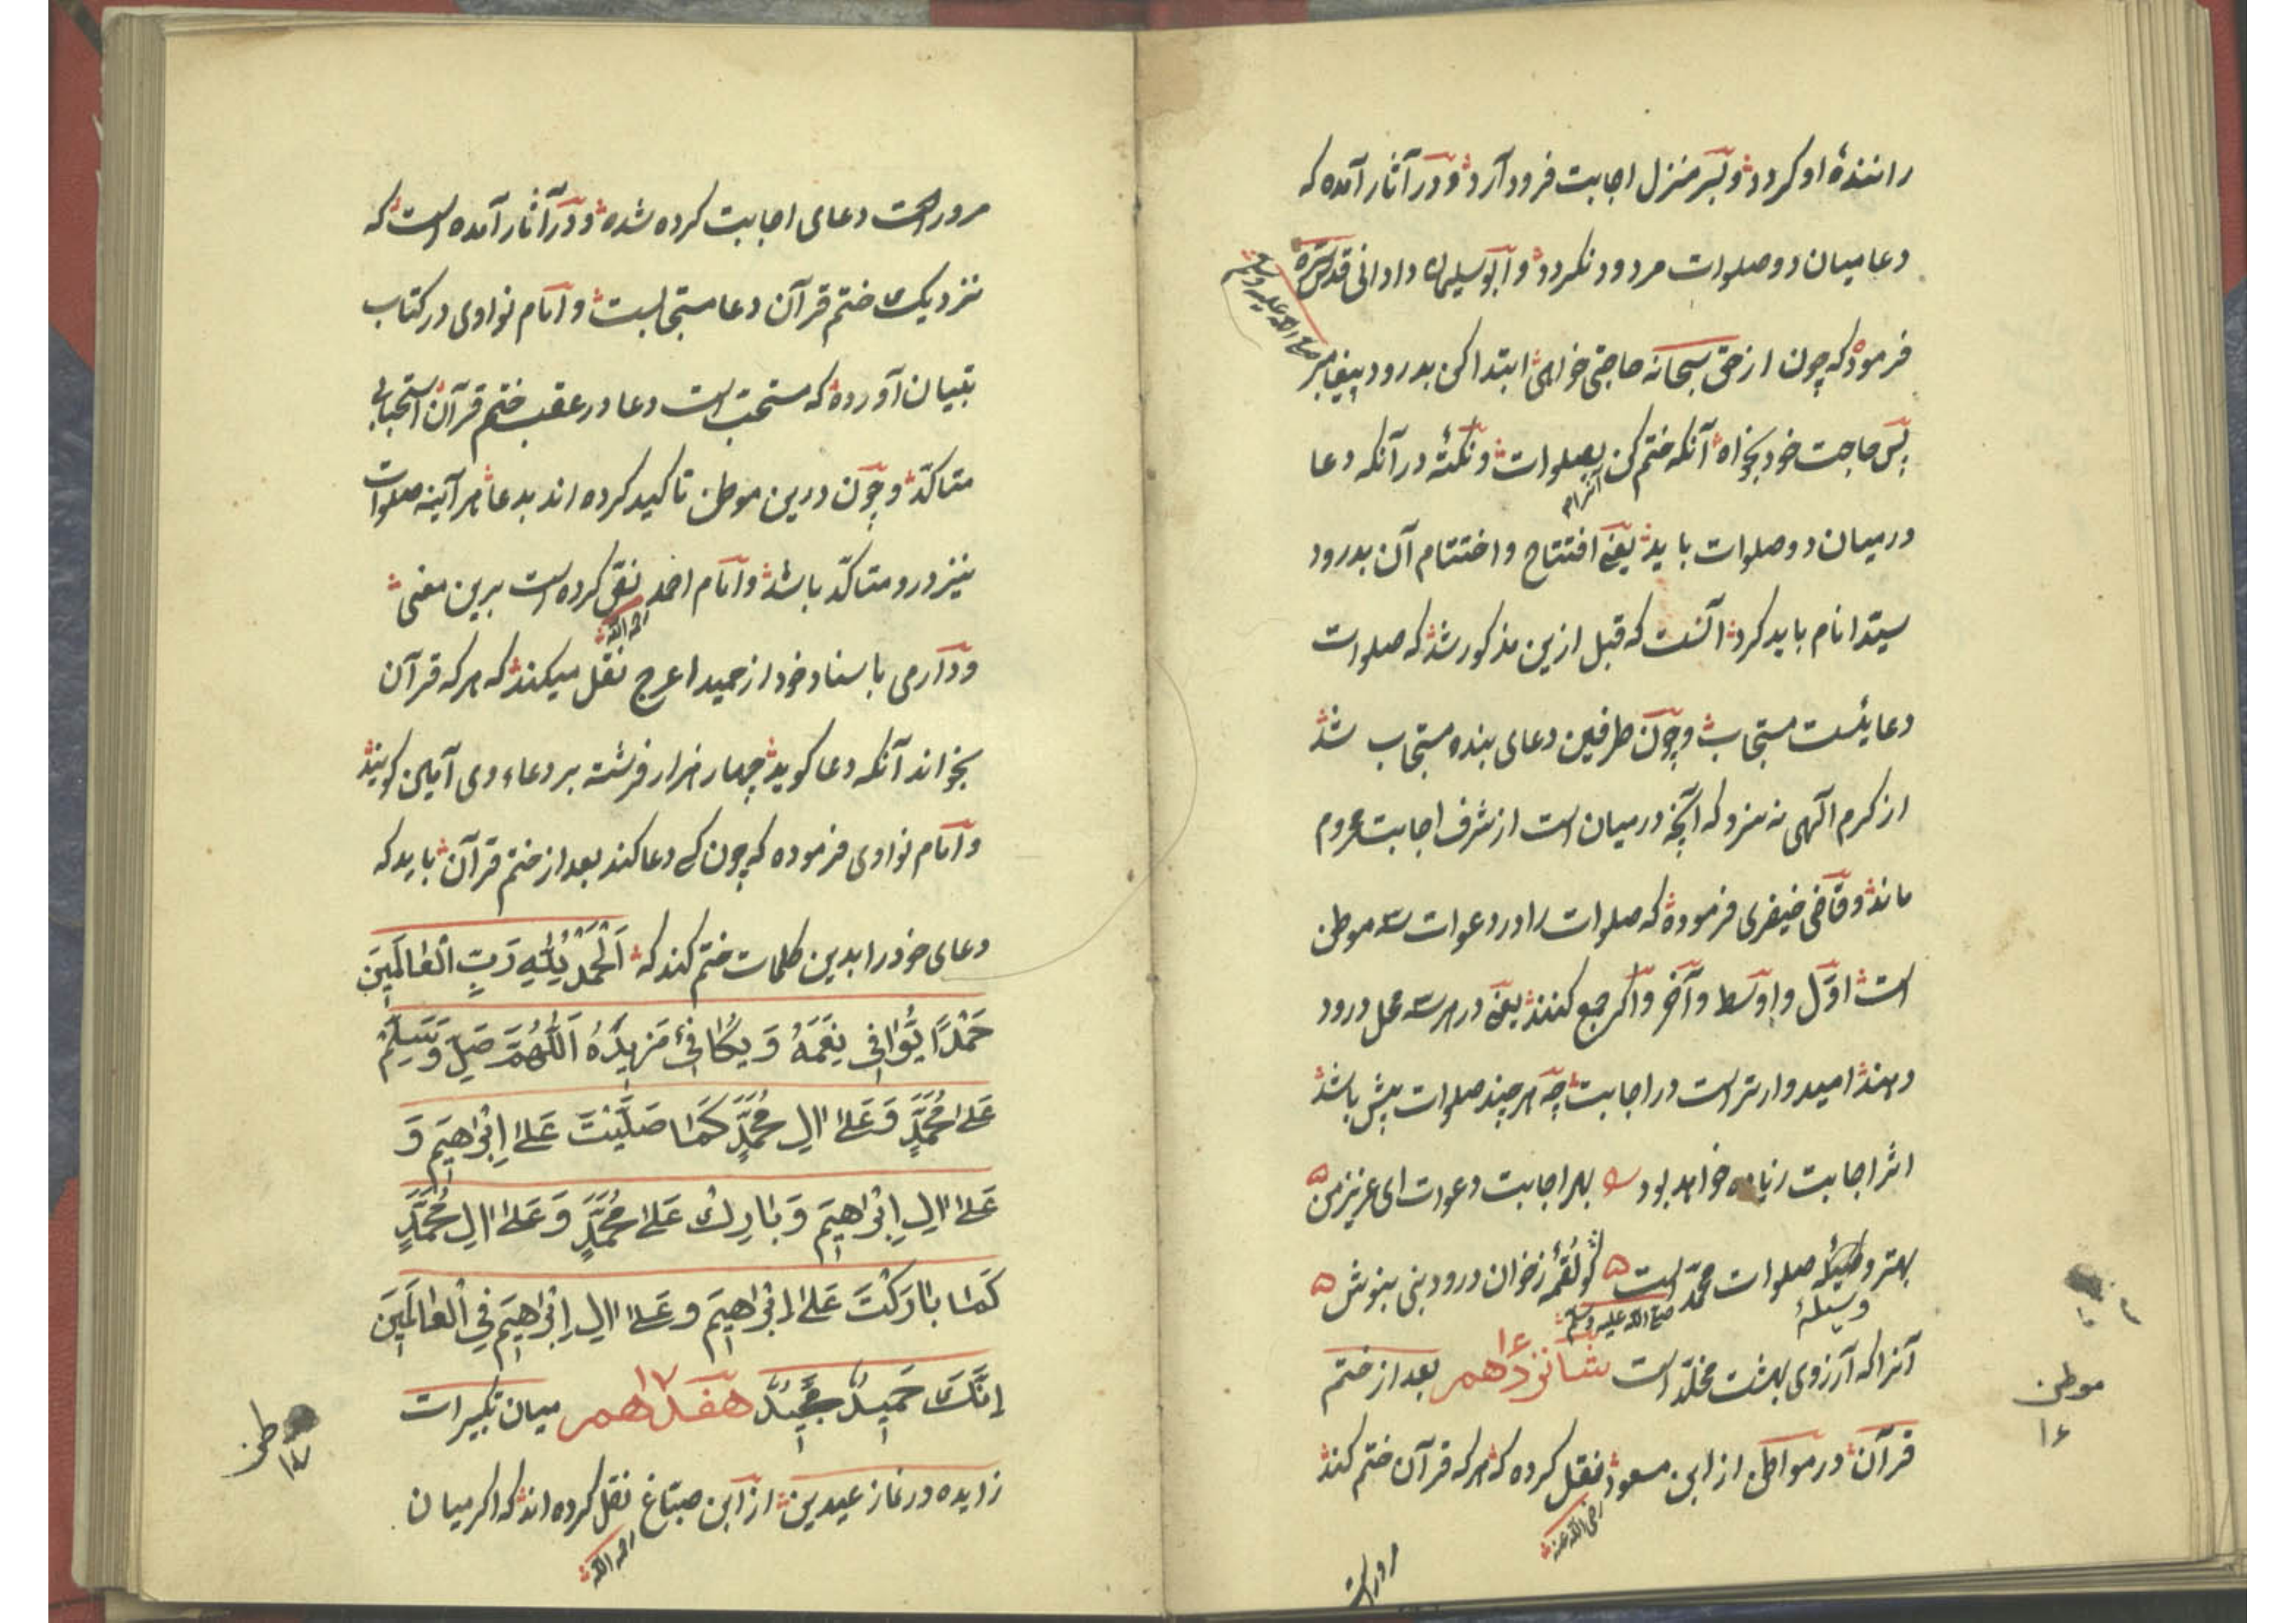 رانندهٔ او کردد و بسر منزل اجابت فرود آرد و در آثار آمده که
دعا میان دو صلوات مردود نکردد و ابو سلیمان دارانی قدس سره
فرمود که چون از حق سبحانه حاجتی خواهی ابتدا کن بدرود پیغامبر
صلی الله علیه وسلم
پس حاجت خود بخواه آنکه ختم کن بصلوات و نکتهٔ در آنکه دعا
در میان دو صلوات باید یعنی افتتاح و اختتام آن بدرود
سید انام باید کرد آنست که قبل ازین مذکور شد که صلوات
دعایئست مستجاب و چون طرفین دعای بنده مستجاب شد
از کرم الهی نه سزد که آنچه در میان است از شرف اجابت محروم
ماند و قاضی خیضری فرموده که صلوات را در دعوات سه موطن
است اول و اوسط و آخر و اکر جمع کنند یعنی در هر سه محل درود
دهند امیدوارتر است در اجابت چه هر چند صلوات بیش باشد
اثر اجابت زیاده خواهد بود بهر اجابت دعوات ای عزیز من
بهتر وسیلهٔ صلوات محمد است کو لقمهٔ ز خوان درود نبی بنوش
صلی الله علیه وسلم
آنرا که آرزوی بهشت مخلد است شانزدهم ۱۶ بعد از ختم
قرآن در مواطن از ابن مسعود نقل کرده که هر که قرآن ختم کند
رضی الله عنه
موطن
۱۶
مرور است
مرور است دعای اجابت کرده شده و در آثار آمده است که
نزدیک ختم قرآن دعا مستجابست و امام نواوی در کتاب
تبیان آورده که مستحب است دعا در عقب ختم قرآن استحبابی
متأکد و چون درین موطن تاکید کرده اند بدعا هر آینه صلوات
نیز درو متأکد باشد و امام احمد نقل کرده است برین معنی
رحمه الله
و دارمی باسناد خود از حمید اعرج نقل میکند که هر که قرآن
بخواند آنکه دعا کوید چهار هزار فرشته بر دعاء وی آمین کویند
و امام نواوی فرموده که چون کسی دعا کند بعد از ختم قرآن باید که
دعای خود را بدین کلمات ختم کند که اَلْحَمْدُ لِلّٰهِ رَبِّ الْعَالَمِينَ
حَمْدًا يُّوَافِي نِعَمَهُ وَيُكَافِئُ مَزِيدَهُ اَللّٰهُمَّ صَلِّ وَسَلِّمْ
عَلىٰ مُحَمَّدٍ وَعَلىٰ اٰلِ مُحَمَّدٍ كَمَا صَلَّيْتَ عَلىٰ اِبْرَاهِيمَ وَ
عَلىٰ اٰلِ اِبْرَاهِيمَ وَبَارِكْ عَلىٰ مُحَمَّدٍ وَعَلىٰ اٰلِ مُحَمَّدٍ
كَمَا بَارَكْتَ عَلىٰ اِبْرَاهِيمَ وَعَلىٰ اٰلِ اِبْرَاهِيمَ فِي الْعَالَمِينَ
اِنَّكَ حَمِيدٌ مَّجِيدٌ هفدهم ۱۷ میان تکبیرات
زایده در نماز عیدین از ابن صباغ نقل کرده اند که اکر میان
رحمه الله
موطن
۱۷